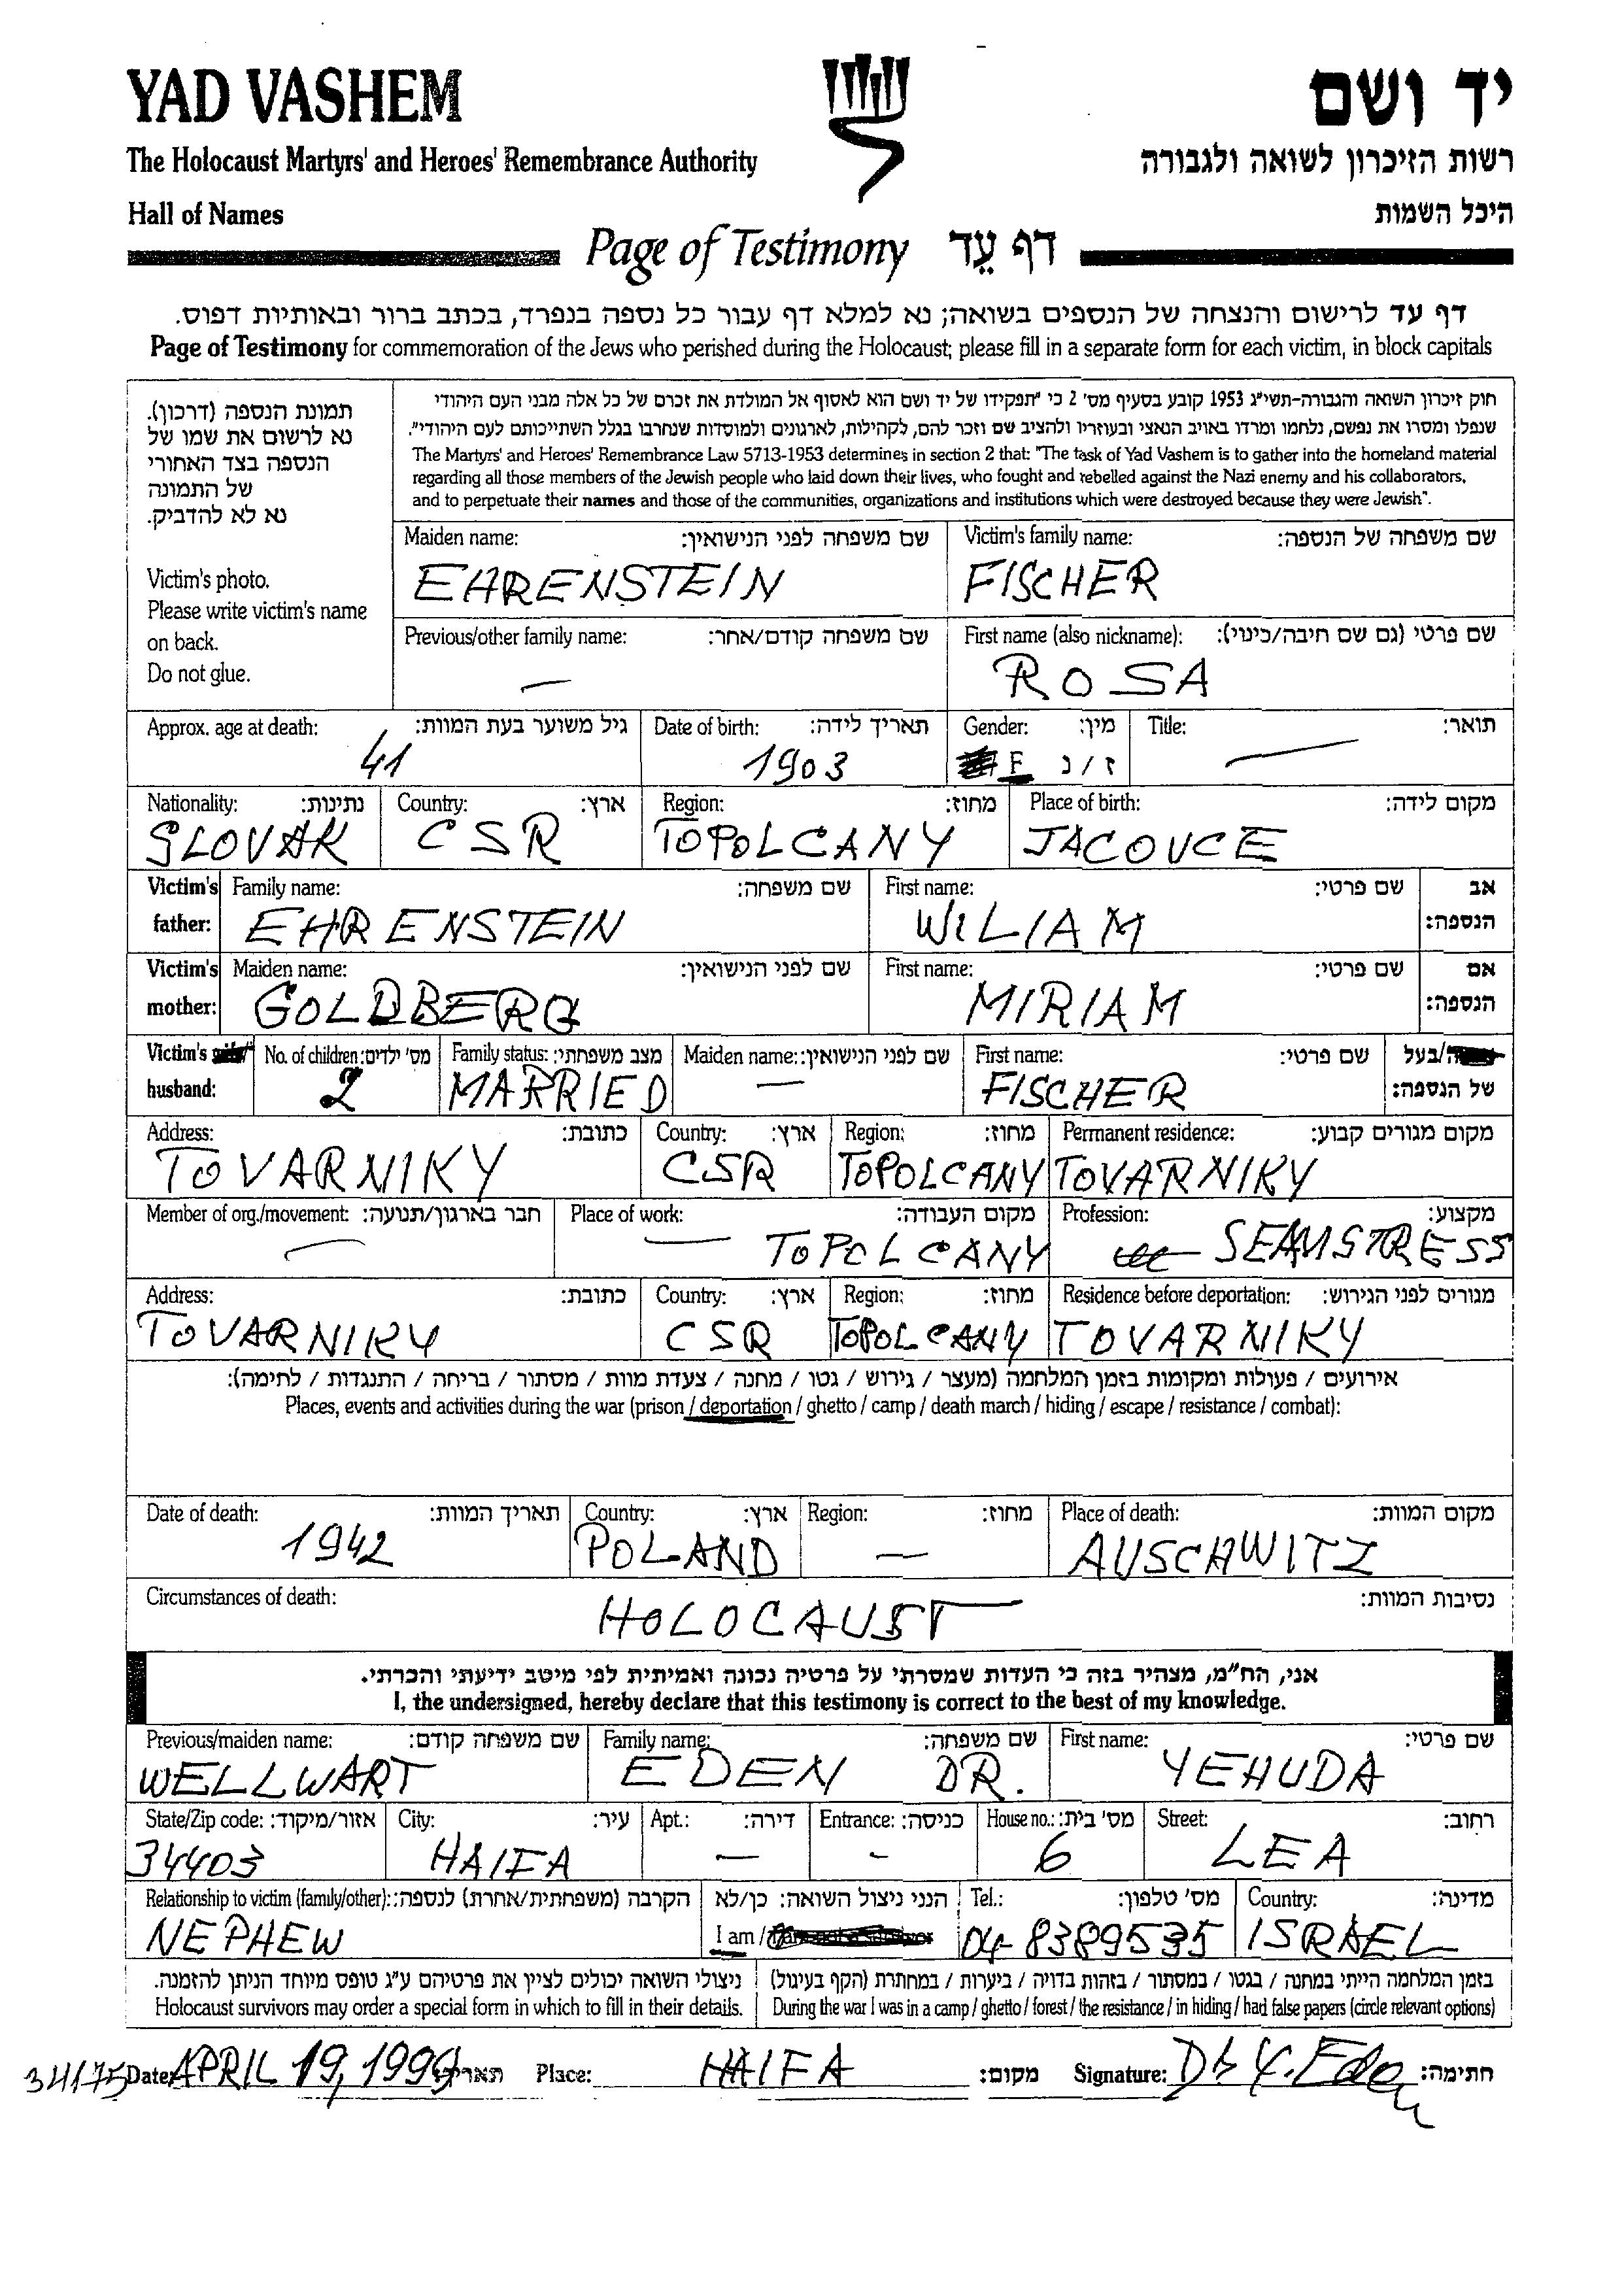 YAD VASHEM
יד ושם
The Holocaust Martyrs' and Heroes' Remembrance Authority
רשות הזיכרון לשואה ולגבורה
Hall of Names
היכל השמות
Page of Testimony דף עֵד
דף עד לרישום והנצחה של הנספים בשואה; נא למלא דף עבור כל נספה בנפרד, בכתב ברור ובאותיות דפוס.
Page of Testimony for commemoration of the Jews who perished during the Holocaust; please fill in a separate form for each victim, in block capitals
תמונת הנספה (דרכון).
נא לרשום את שמו של
הנספה בצד האחורי
של התמונה
נא לא להדביק.
Victim's photo.
Please write victim's name
on back.
Do not glue.
חוק זיכרון השואה והגבורה-תשי"ג 1953 קובע בסעיף מס' 2 כי "תפקידו של יד ושם הוא לאסוף אל המולדת את זכרם של כל אלה מבני העם היהודי
שנפלו ומסרו את נפשם, נלחמו ומרדו באויב הנאצי ובעוזריו ולהציב שם וזכר להם, לקהילות, לארגונים ולמוסדות שנחרבו בגלל השתייכותם לעם היהודי".
The Martyrs' and Heroes' Remembrance Law 5713-1953 determines in section 2 that: "The task of Yad Vashem is to gather into the homeland material
regarding all those members of the Jewish people who laid down their lives, who fought and rebelled against the Nazi enemy and his collaborators,
and to perpetuate their names and those of the communities, organizations and institutions which were destroyed because they were Jewish".
Maiden name: שם משפחה לפני הנישואין: Victim's family name: שם משפחה של הנספה:
EHRENSTEIN FISCHER
Previous/other family name: שם משפחה קודם/אחר: First name (also nickname): שם פרטי (גם שם חיבה/כינוי):
— ROSA
Approx. age at death: גיל משוער בעת המוות: Date of birth: תאריך לידה: Gender: מין: Title: תואר:
41 1903 F ז / נ —
Nationality: נתינות: Country: ארץ: Region: מחוז: Place of birth: מקום לידה:
SLOVAK CSR TOPOLCANY JACOVCE
Victim's Family name: שם משפחה: First name: שם פרטי: אב
father: EHRENSTEIN WILIAM הנספה:
Victim's Maiden name: שם לפני הנישואין: First name: שם פרטי: אם
mother: GOLDBERG MIRIAM הנספה:
Victim's No. of children: מס' ילדים: Family status: מצב משפחתי: Maiden name: שם לפני הנישואין: First name: שם פרטי: ה/בעל
husband: 2 MARRIED — FISCHER של הנספה:
Address: כתובת: Country: ארץ: Region: מחוז: Permanent residence: מקום מגורים קבוע:
TOVARNIKY CSR TOPOLCANY TOVARNIKY
Member of org./movement: חבר בארגון/תנועה: Place of work: מקום העבודה: Profession: מקצוע:
— — TOPOLCANY SEAMSTRESS
Address: כתובת: Country: ארץ: Region: מחוז: Residence before deportation: מגורים לפני הגירוש:
TOVARNIKY CSR TOPOLCANY TOVARNIKY
אירועים / פעולות ומקומות בזמן המלחמה (מעצר / גירוש / גטו / מחנה / צעדת מוות / מסתור / בריחה / התנגדות / לחימה):
Places, events and activities during the war (prison / deportation / ghetto / camp / death march / hiding / escape / resistance / combat):
Date of death: תאריך המוות: Country: ארץ: Region: מחוז: Place of death: מקום המוות:
1942 POLAND — AUSCHWITZ
Circumstances of death: נסיבות המוות:
HOLOCAUST
אני, הח"מ, מצהיר בזה כי העדות שמסרתי על פרטיה נכונה ואמיתית לפי מיטב ידיעתי והכרתי.
I, the undersigned, hereby declare that this testimony is correct to the best of my knowledge.
Previous/maiden name: שם משפחה קודם: Family name: שם משפחה: First name: שם פרטי:
WELLWART EDEN DR. YEHUDA
State/Zip code: אזור/מיקוד: City: עיר: Apt.: דירה: Entrance: כניסה: House no.: מס' בית: Street: רחוב:
34403 HAIFA — - 6 LEA
Relationship to victim (family/other): הקרבה (משפחתית/אחרת) לנספה: הנני ניצול השואה: כן/לא Tel.: מס' טלפון: Country: מדינה:
NEPHEW I am / 04-8389535 ISRAEL
ניצולי השואה יכולים לציין את פרטיהם ע"ג טופס מיוחד הניתן להזמנה. בזמן המלחמה הייתי במחנה / בגטו / במסתור / בזהות בדויה / ביערות / במחתרת (הקף בעיגול)
Holocaust survivors may order a special form in which to fill in their details. During the war I was in a camp / ghetto / forest / the resistance / in hiding / had false papers (circle relevant options)
34175 Date: APRIL 19, 1999 תאריך: Place: HAIFA מקום: Signature: Dr Y. Eden חתימה: